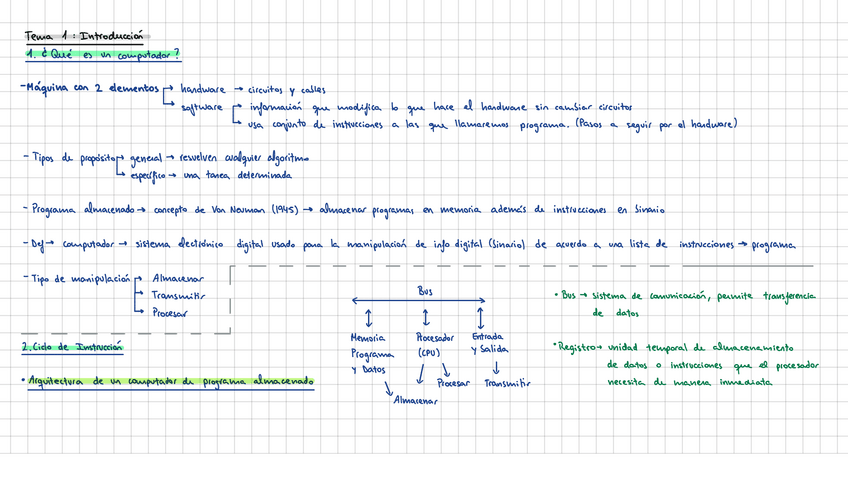 Tema 1: Introducción
1. ¿Qué es un computador?
- Máquina con 2 elementos → hardware → circuitos y cables
→ software → información que modifica lo que hace el hardware sin cambiar circuitos
→ usa conjunto de instrucciones a las que llamaremos programa. (Pasos a seguir por el hardware)
- Tipos de propósito → general → resuelven cualquier algoritmo
→ específico → una tarea determinada
- Programa almacenado → concepto de Von Neuman (1945) → almacenar programas en memoria además de instrucciones en binario
- Def → computador → sistema electrónico digital usado para la manipulación de info digital (binario) de acuerdo a una lista de instrucciones → programa.
- Tipo de manipulación → Almacenar
→ Transmitir
→ Procesar
2. Ciclo de Instrucción
• Arquitectura de un computador de programa almacenado
Bus
Memoria Programa y Datos
Procesador (CPU)
Entrada y Salida
Almacenar
Procesar
Transmitir
• Bus → sistema de comunicación, permite transferencia
de datos
• Registro → unidad temporal de almacenamiento
de datos o instrucciones que el procesador
necesita de manera inmediata